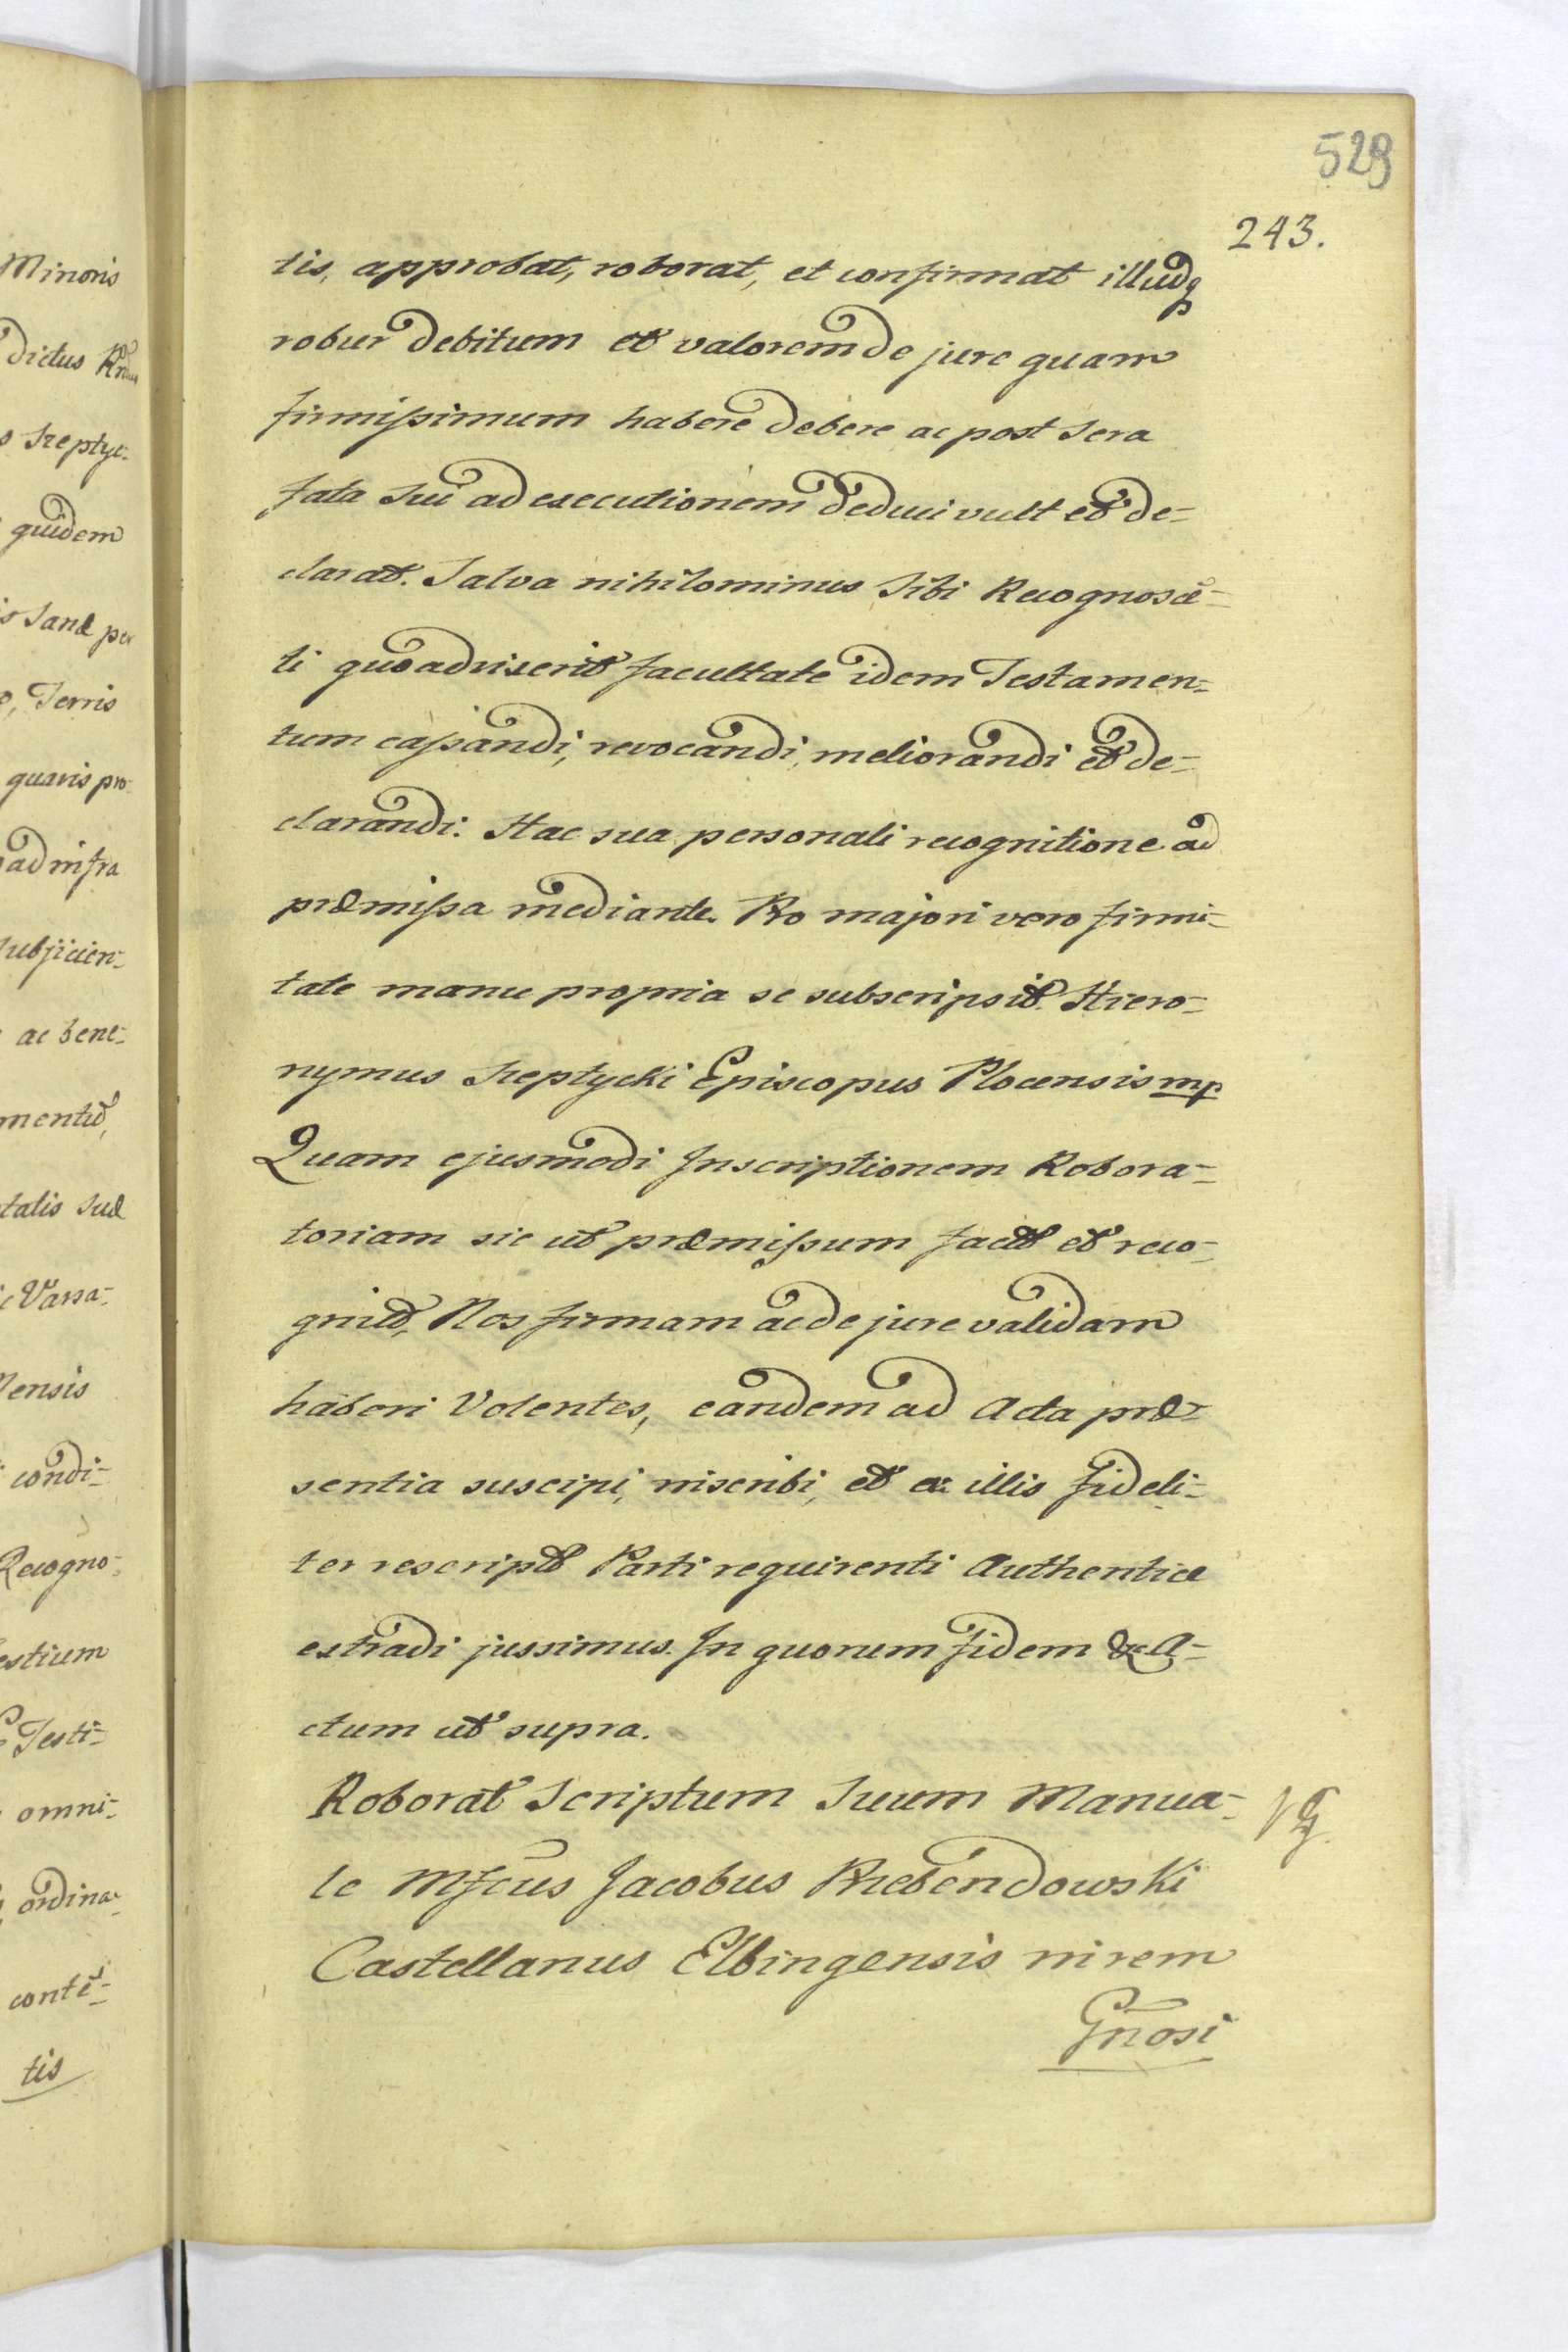 Minoris
dictus Rndus
s Szeptyc-
quidem
is sanæ per
o, Terris
quavis pro-
ad infra
subjicien-
ac bene-
mentū,
talis suæ
c Varsa-
ensis
condi-
Recogno-
estium
Testi-
omni-
ordina-
contē-
tis
529
243.
tis, approbat, roborat, et confirmat illudq
robur debitum et valorem de jure quam
firmissimum habere debere ac post sera
fata sui ad executionem deduci vult et de-
clarat. Salva nihilominus sibi Recognoscē-
ti quoadvixerit facultate idem Testamen-
tum cassandi, revocandi, meliorandi et de-
clarandi. Hac sua personali recognitione ad
præmissa mediante. Pro majori vero firmi-
tate manu propria se subscripsit. Hiero-
nymus Szeptycki Episcopus Plocensis mp
Quam ejusmodi Inscriptionem Robora-
toriam sic ut præmissum factā et reco-
gnitā, Nos firmam ac de jure validam
haberi Volentes, eandem ad Acta præ-
sentia suscipi, inscribi, et ex illis fideli-
ter rescriptā Parti requirenti Authentice
extradi jussimus. In quorum fidem &c A-
ctum ut supra.
Roborat Scriptum Suum Manua-
le Mfcus Jacobus Przebendowski
Castellanus Elbingensis in rem
Gnosi